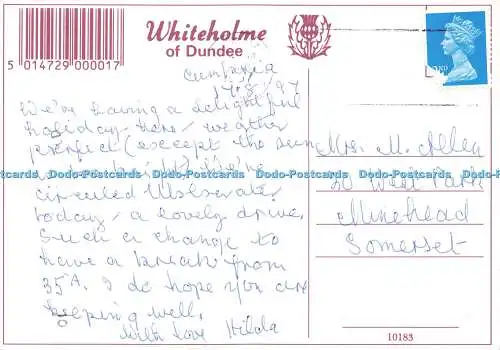 Whiteholme
of Dundee
5 014729 000017
Cumbria
17/8/97
We're having a delightful
holiday here, weather
perfect (except the sun
We've
circuled Ullswater
today, a lovely drive.
Such a change to
have a break from
35A. I do hope you are
keeping well.
With love Hilda
Mrs. M. Allen
20 West Park
Minehead
Somerset
10183
2ND
Dodo-Postcards Dodo-Postcards Dodo-Postcards Dodo-Postcards Dodo-Postcards